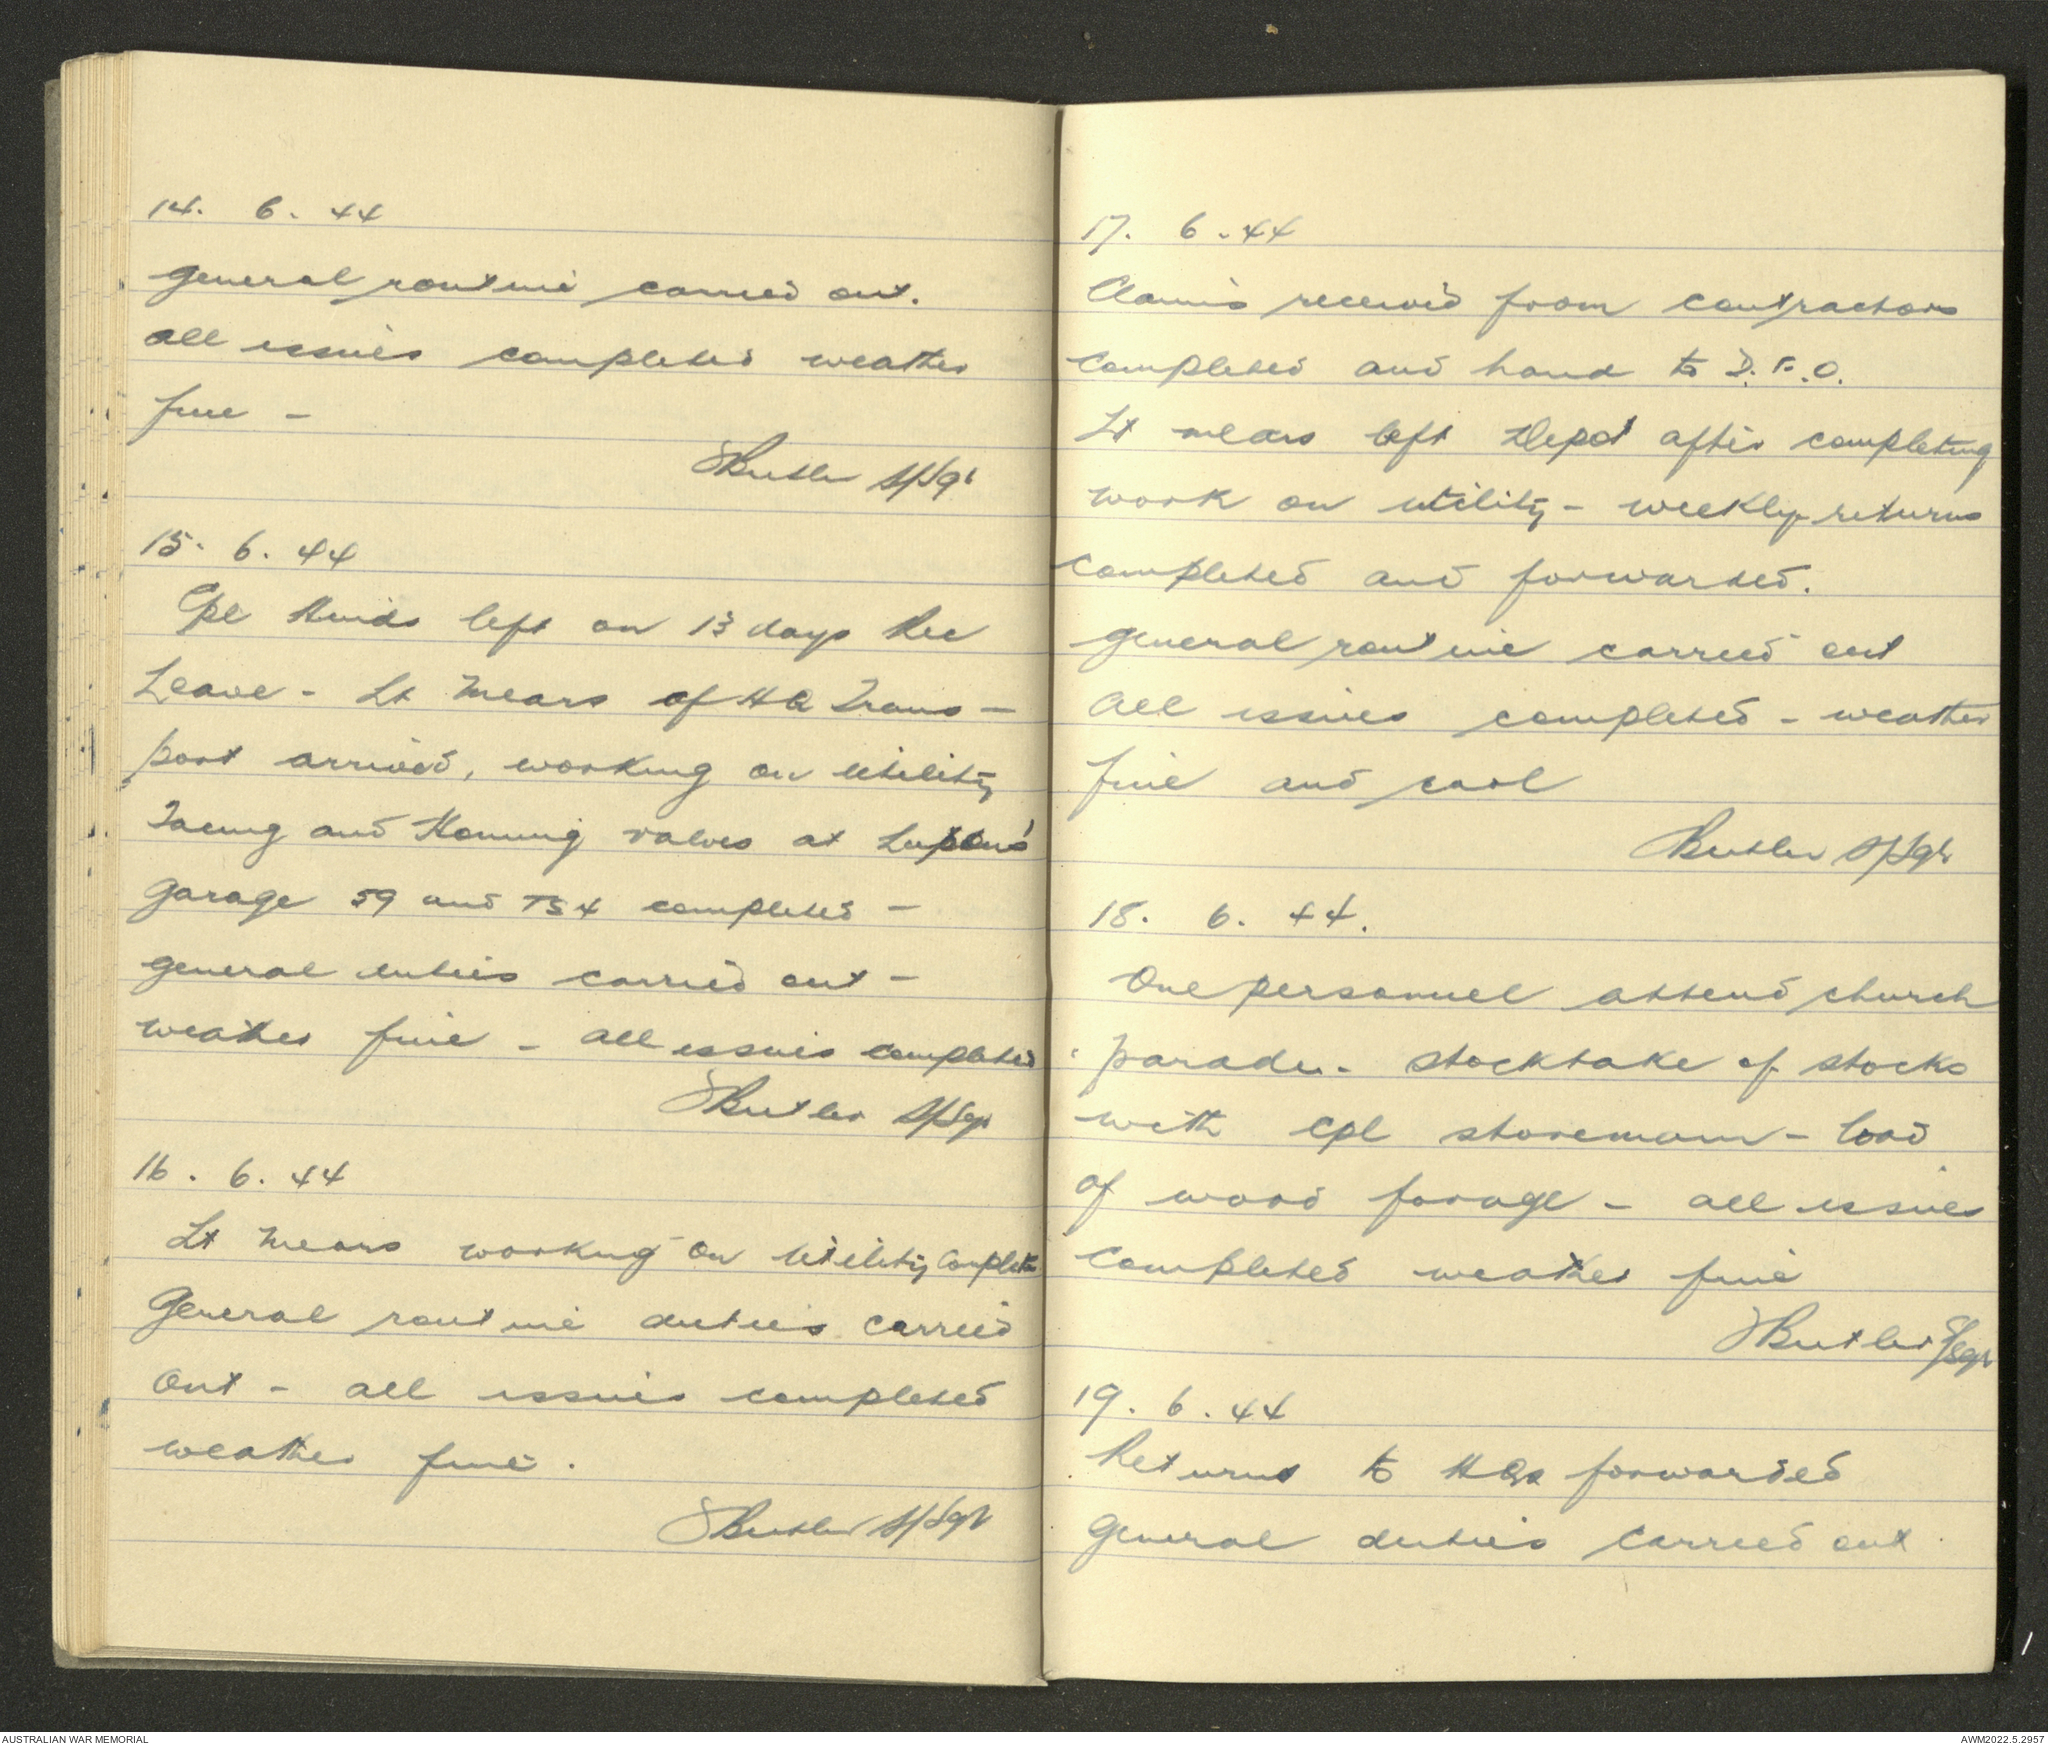 14. 6. 44
general routine carried out.
all issues completed weather
fine -
Butler S/Sgt
15. 6. 44
Cpl left on 13 days Rec
Leave - Lt Mears of HQ Trans-
port arrived, working on utility
Facing and Honing valves at
garage 59 and T54 completed -
general duties carried out -
weather fine - all issues completed
Butler S/Sgt
16. 6. 44
Lt Mears working on utility
General routine duties carried
out - all issues completed
weather fine.
Butler S/Sgt
17. 6. 44
Claims received from contractors
completed and hand to D.F.O.
Lt mears left Depot after completing
work on utility - weekly returns
completed and forwarded.
general routine carried out
all issues completed - weather
fine and cool
Butler S/Sgt
18. 6. 44.
One personnel attend church
parade - stocktake of stocks
with cpl storeman - load
of wood forage - all issues
completed weather fine
Butler S/Sgt
19. 6. 44
Returns to HQs forwarded
general duties carried out
AUSTRALIAN WAR MEMORIAL
AWM2022.5.2957